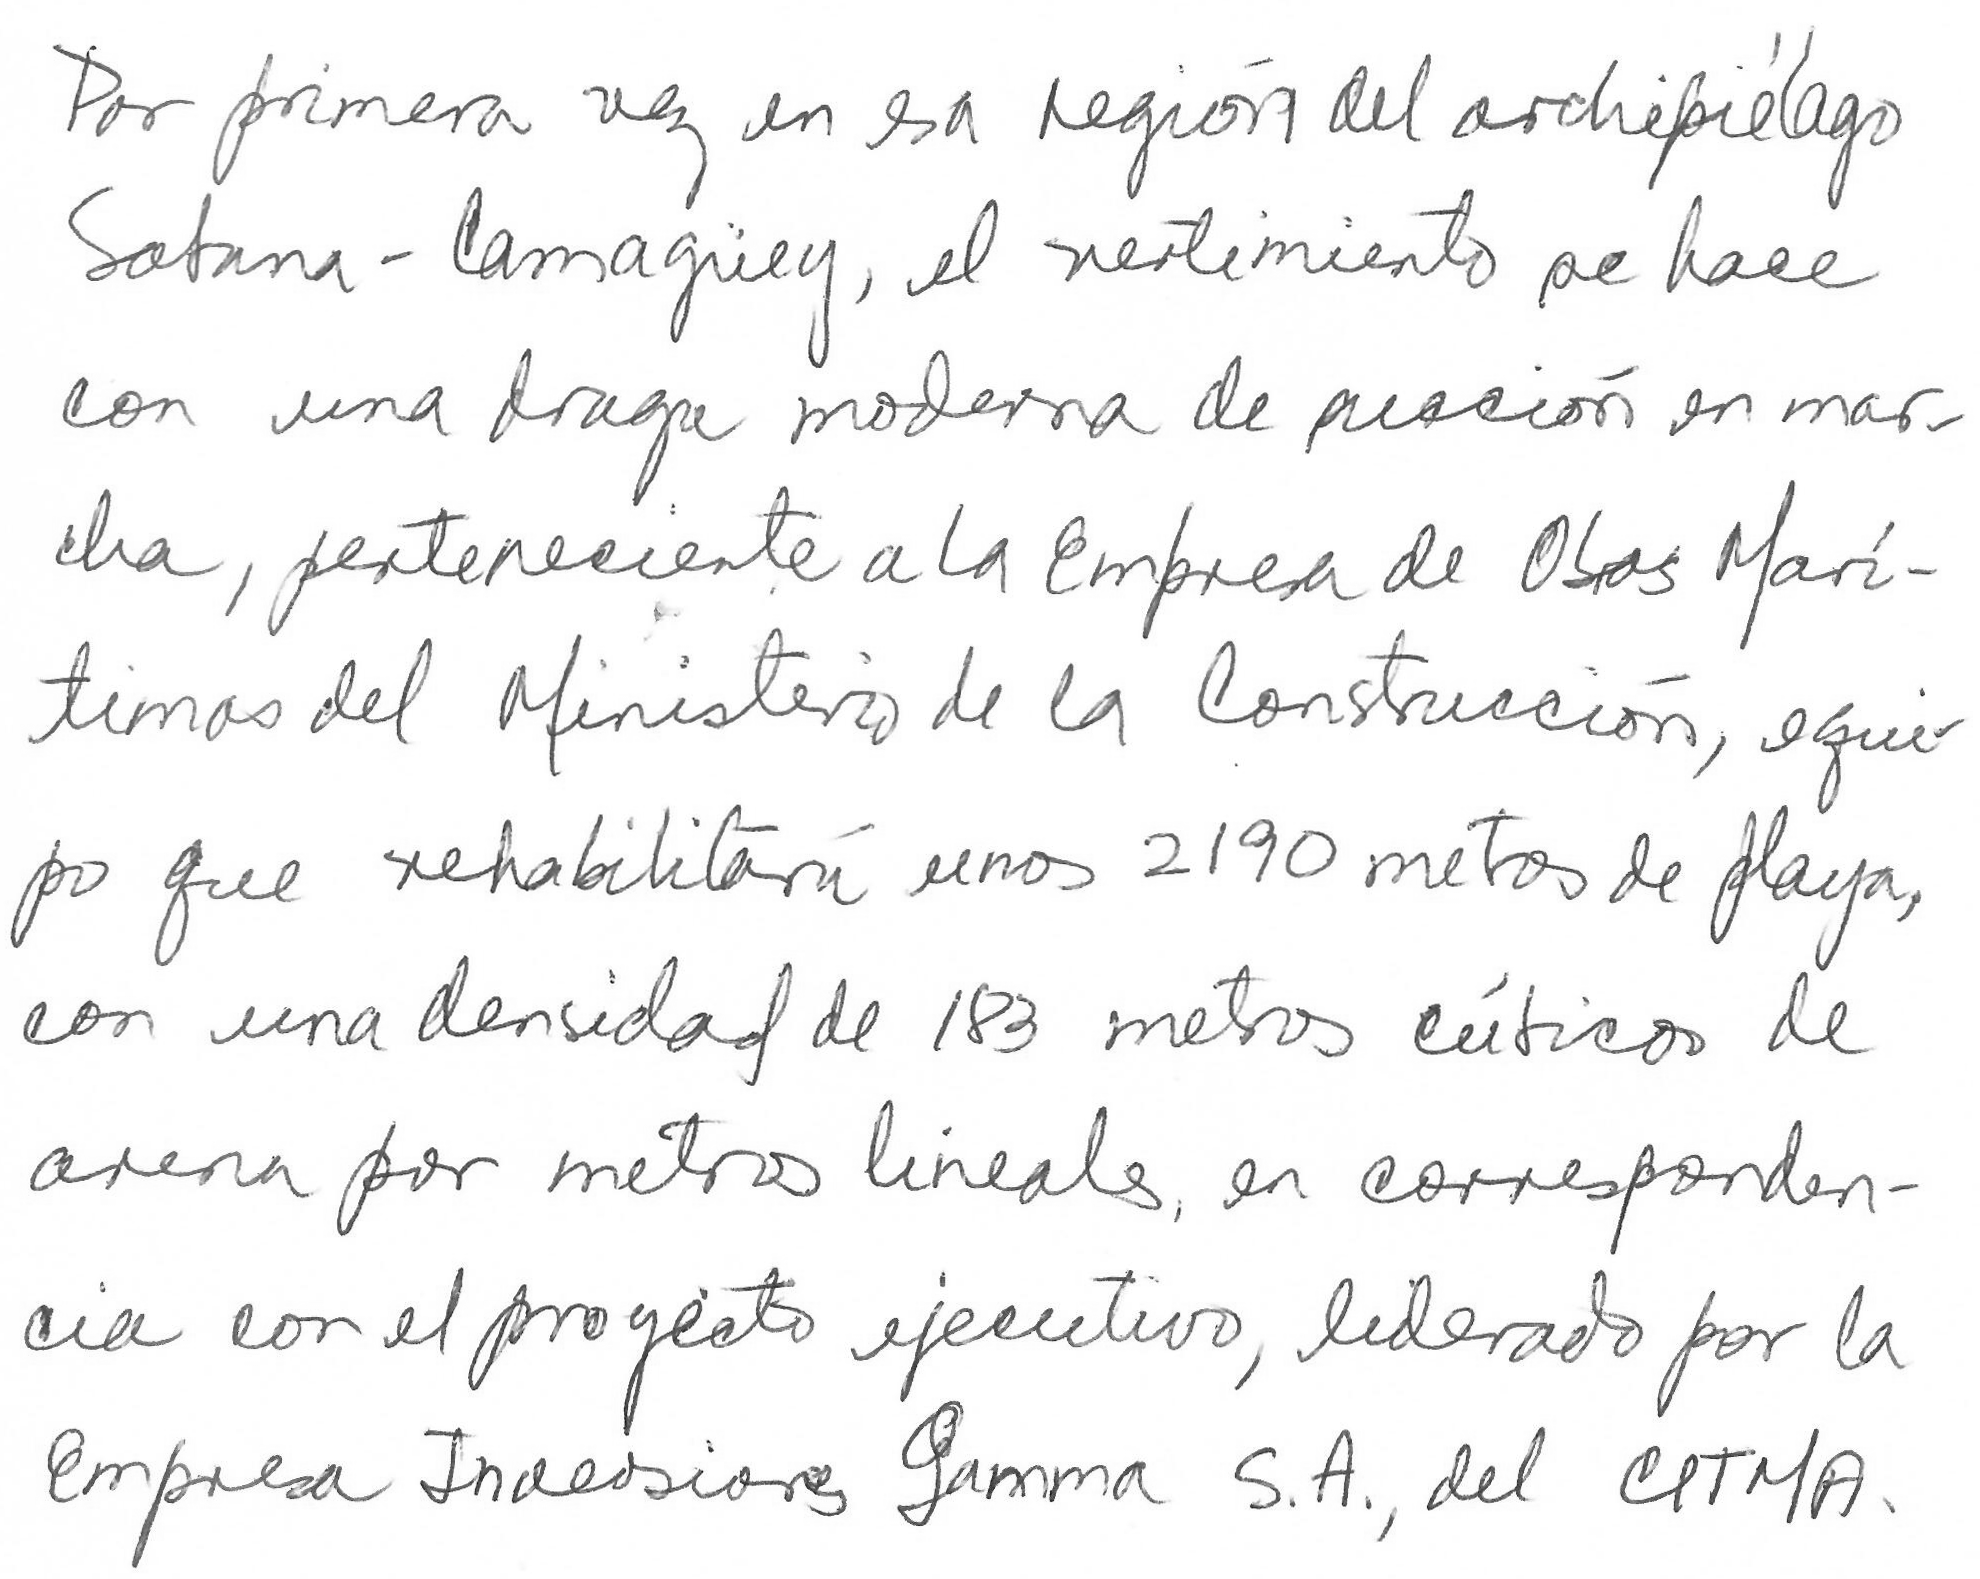 Por primera vez en esa región del archipiélago
Sabana-Camagüey, el vertimiento se hace
con una draga moderna de succión en mar-
cha, perteneciente a la Empresa de Obras Marí-
timas del Ministerio de la Construcción, equi-
po que rehabilitará unos 2190 metros de playa,
con una densidad de 183 metros cúbicos de
arena por metros lineales, en corresponden-
cia con el proyecto ejecutivo, liderado por la
Empresa Inversiones Gamma S.A., del CITMA.